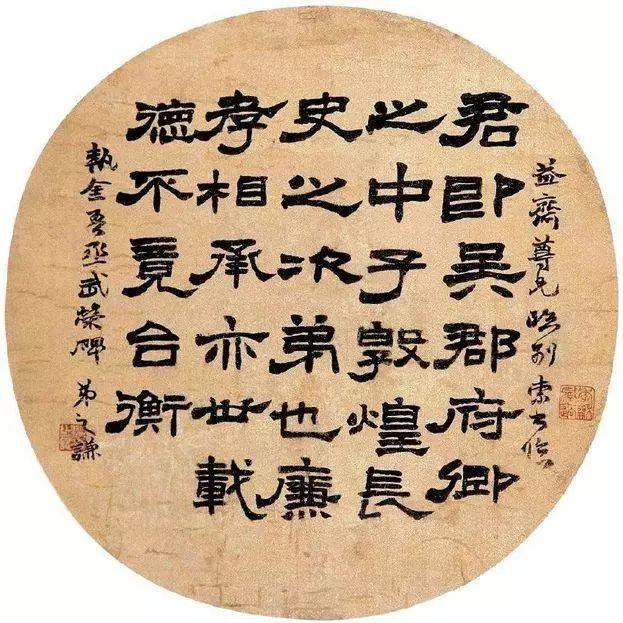 益齋尊兄臨别索書臨
君即吳郡府卿
之中子敦煌長
史之次弟也廉
孝相承亦世載
德不竟台衡
執金吾丞武榮碑 弟之謙